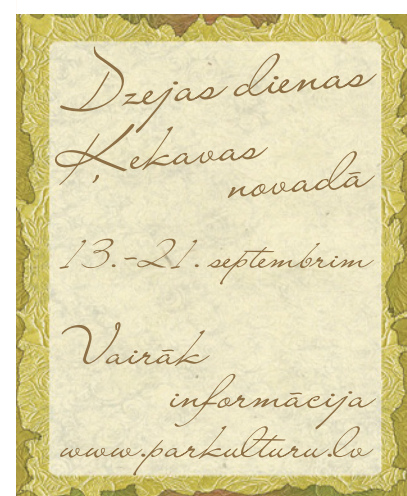 Dzejas dienas
Ķekavas
novadā
13.-21. septembrim
Vairāk
informācija
www.parkulturu.lv